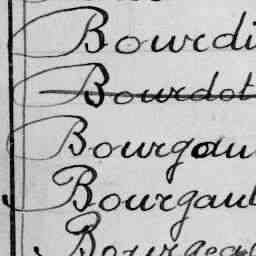 Bourdi
Bourdot
Bourgau
Bourgaul
Bourgea